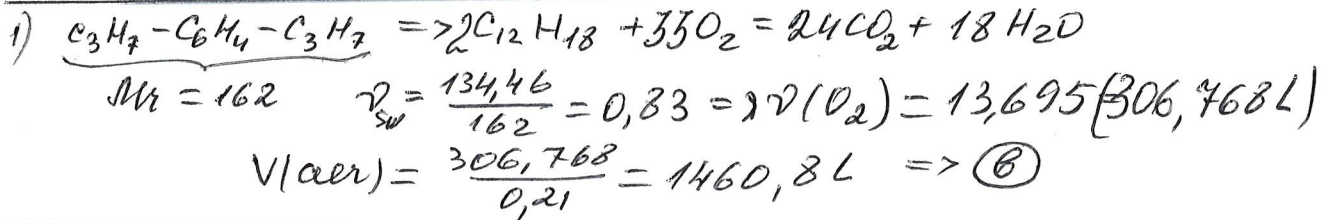 1) C₃H₇ – C₆H₄ – C₃H₇ => 2C₁₂H₁₈ + 33O₂ = 24CO₂ + 18H₂O
Mr = 162 ν = 134,46 / 162 = 0,83 => ν(O₂) = 13,695 (306,768 L)
V(aer) = 306,768 / 0,21 = 1460,8 L => B